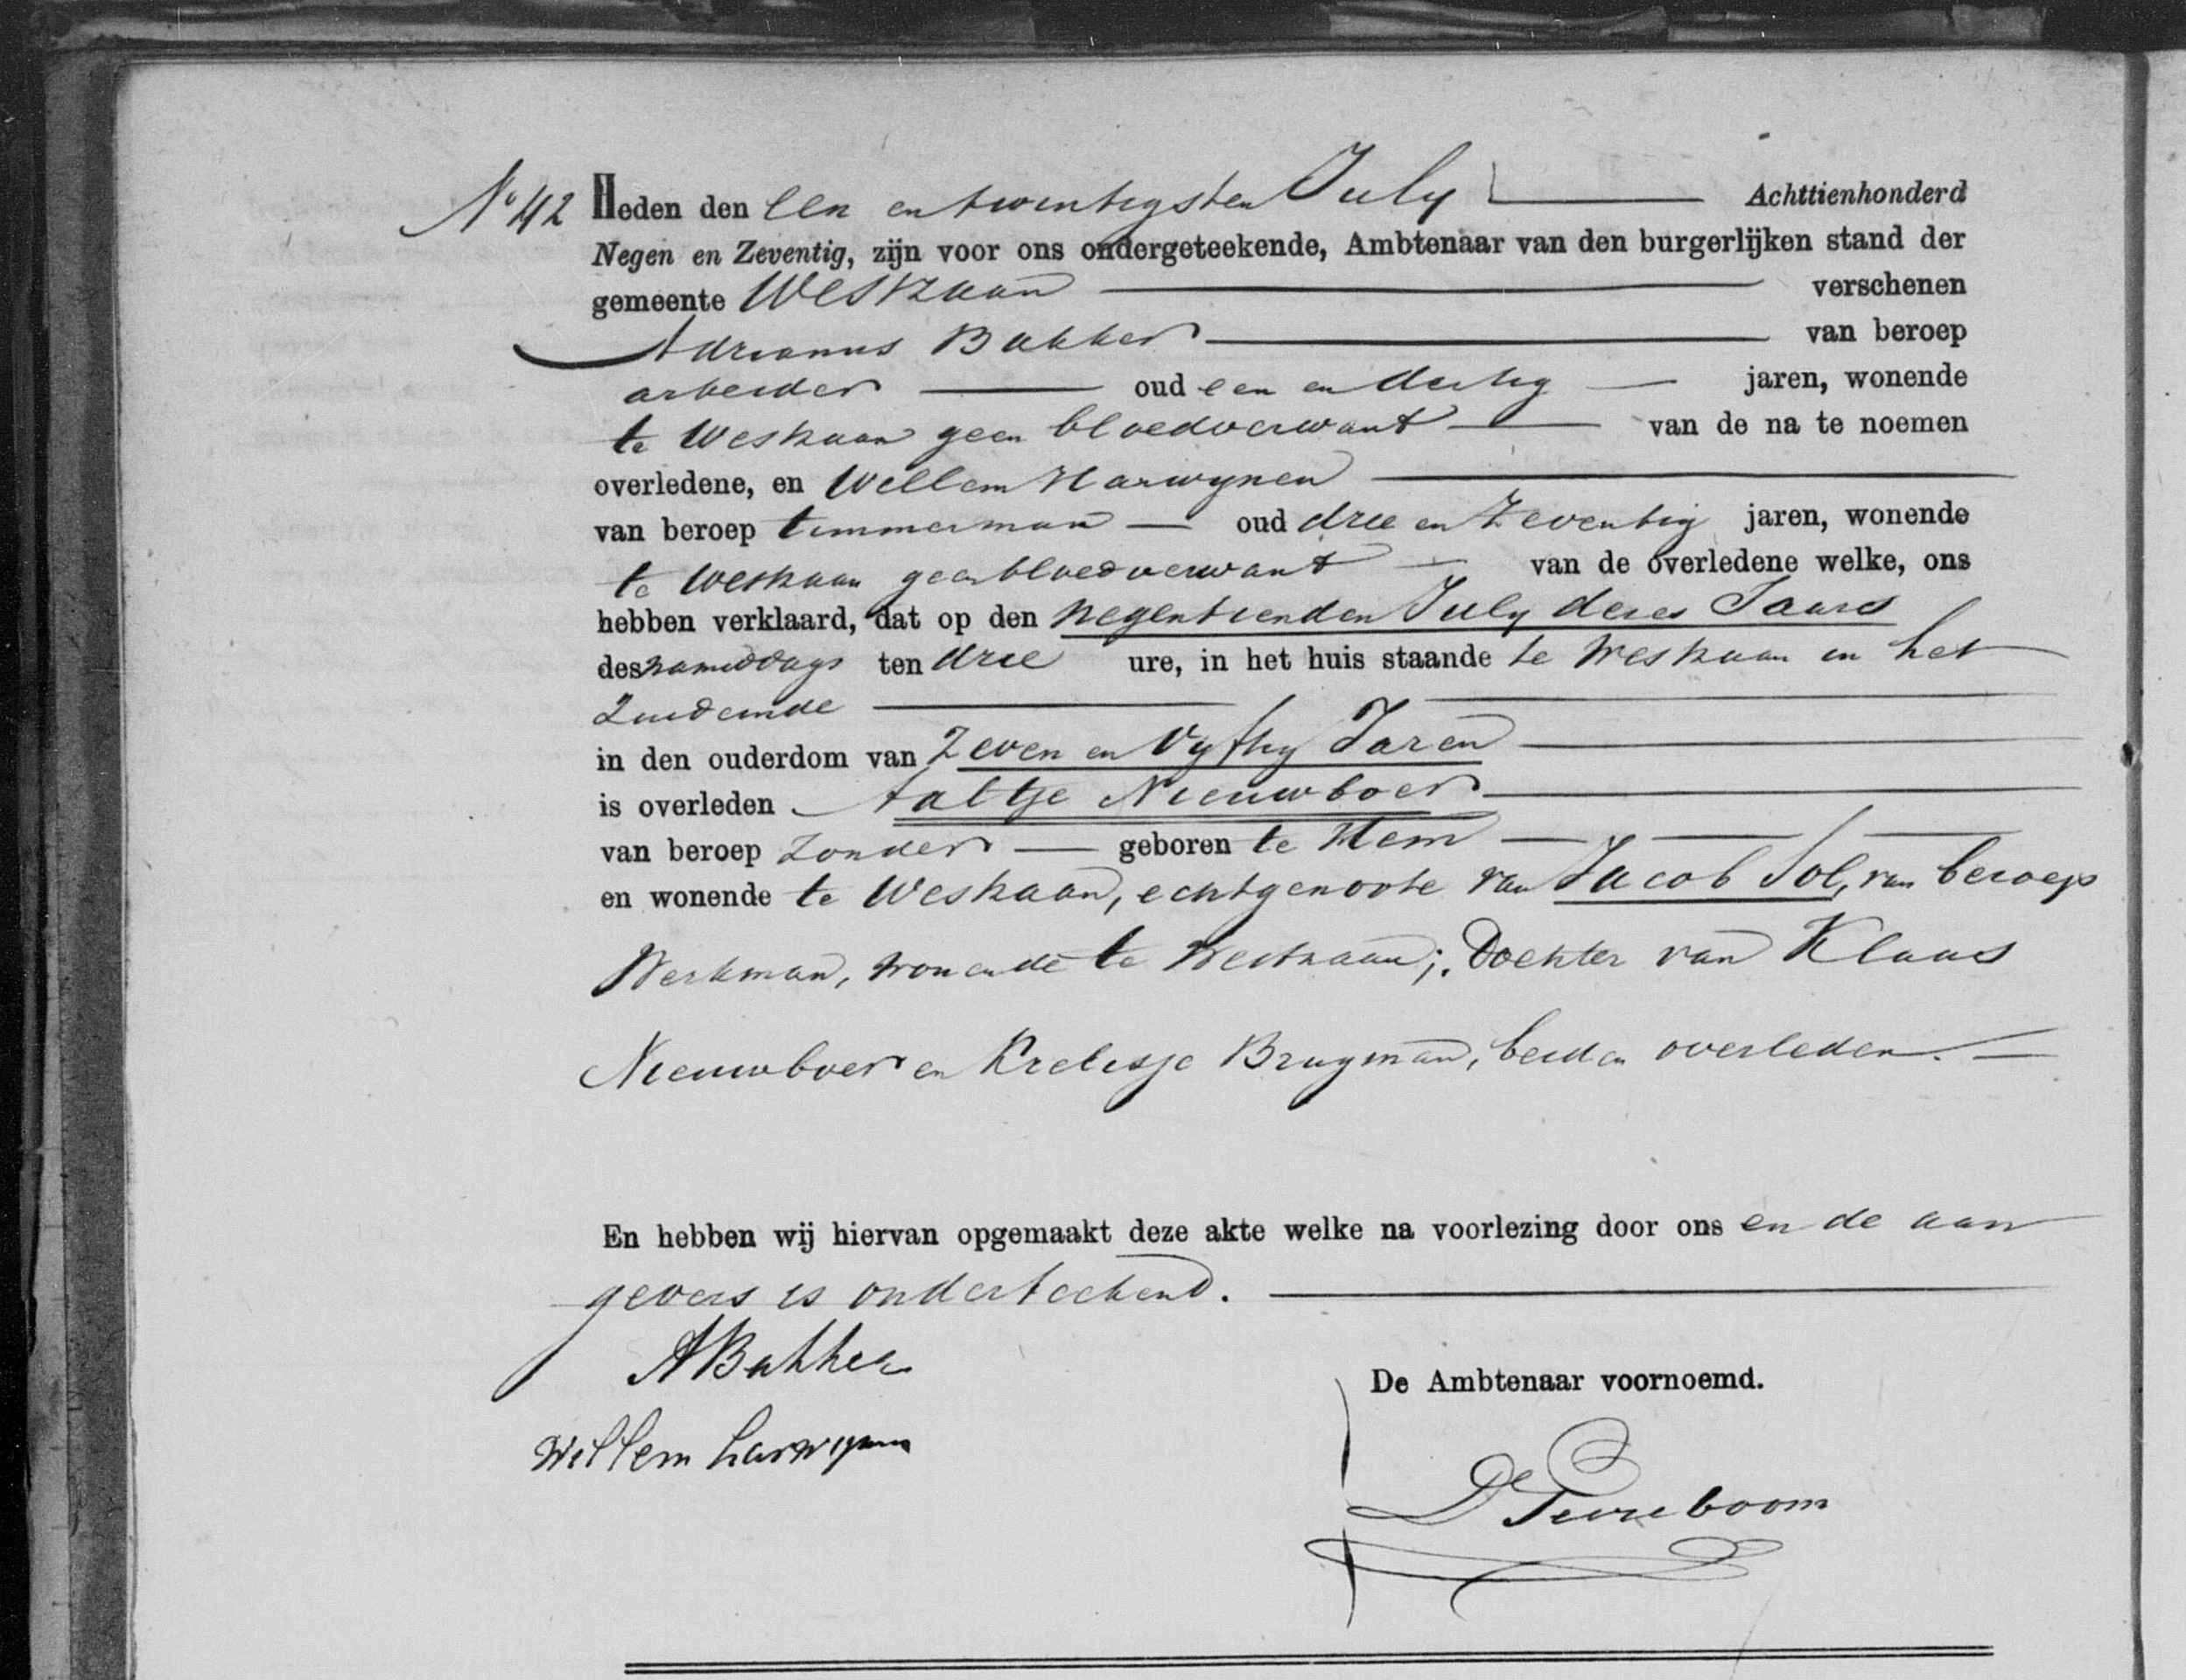 No 42 Heden den een en twintigsten July Achttienhonderd
Negen en Zeventig, zijn voor ons ondergeteekende, Ambtenaar van den burgerlijken stand der
gemeente Westzaan verschenen
Adrianus Bakker van beroep
arbeider oud een en dertig jaren, wonende
te Westzaan geen bloedverwant van de na te noemen
overledene, en Willem Harwynen
van beroep timmerman oud drie en Zeventig jaren, wonende
te Westzaan geen bloedverwant van de overledene welke, ons
hebben verklaard, dat op den negentienden July dezes Jaars
des namiddags ten drie ure, in het huis staande te Westzaan in het
Zuideinde
in den ouderdom van Zeven en Vyftig Jaren
is overleden Aaltje Nieuwboer
van beroep Zonder geboren te Hem
en wonende te Westzaan, echtgenoote van Jacob Sol, van beroep
Werkman, wonende te Westzaan; Dochter van Klaas
Nieuwboer en Krelisje Brugman, beiden overleden.
En hebben wij hiervan opgemaakt deze akte welke na voorlezing door ons en de aan
gevers is onderteekend.
ABakker
De Ambtenaar voornoemd.
Willem harwynen